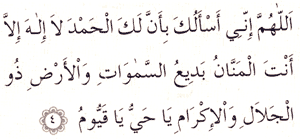 اَللّٰهُمَّ إِنِّي أَسْأَلُكَ بِأَنَّ لَكَ الْحَمْدَ لاَ إِلٰهَ إِلاَّ
أَنْتَ الْمَنَّانُ بَدِيعُ السَّمٰوَاتِ وَاْلأَرْضِ ذُو
الْجَلاَلِ وَاْلإِكْرَامِ يَا حَيُّ يَا قَيُّومُ ٤